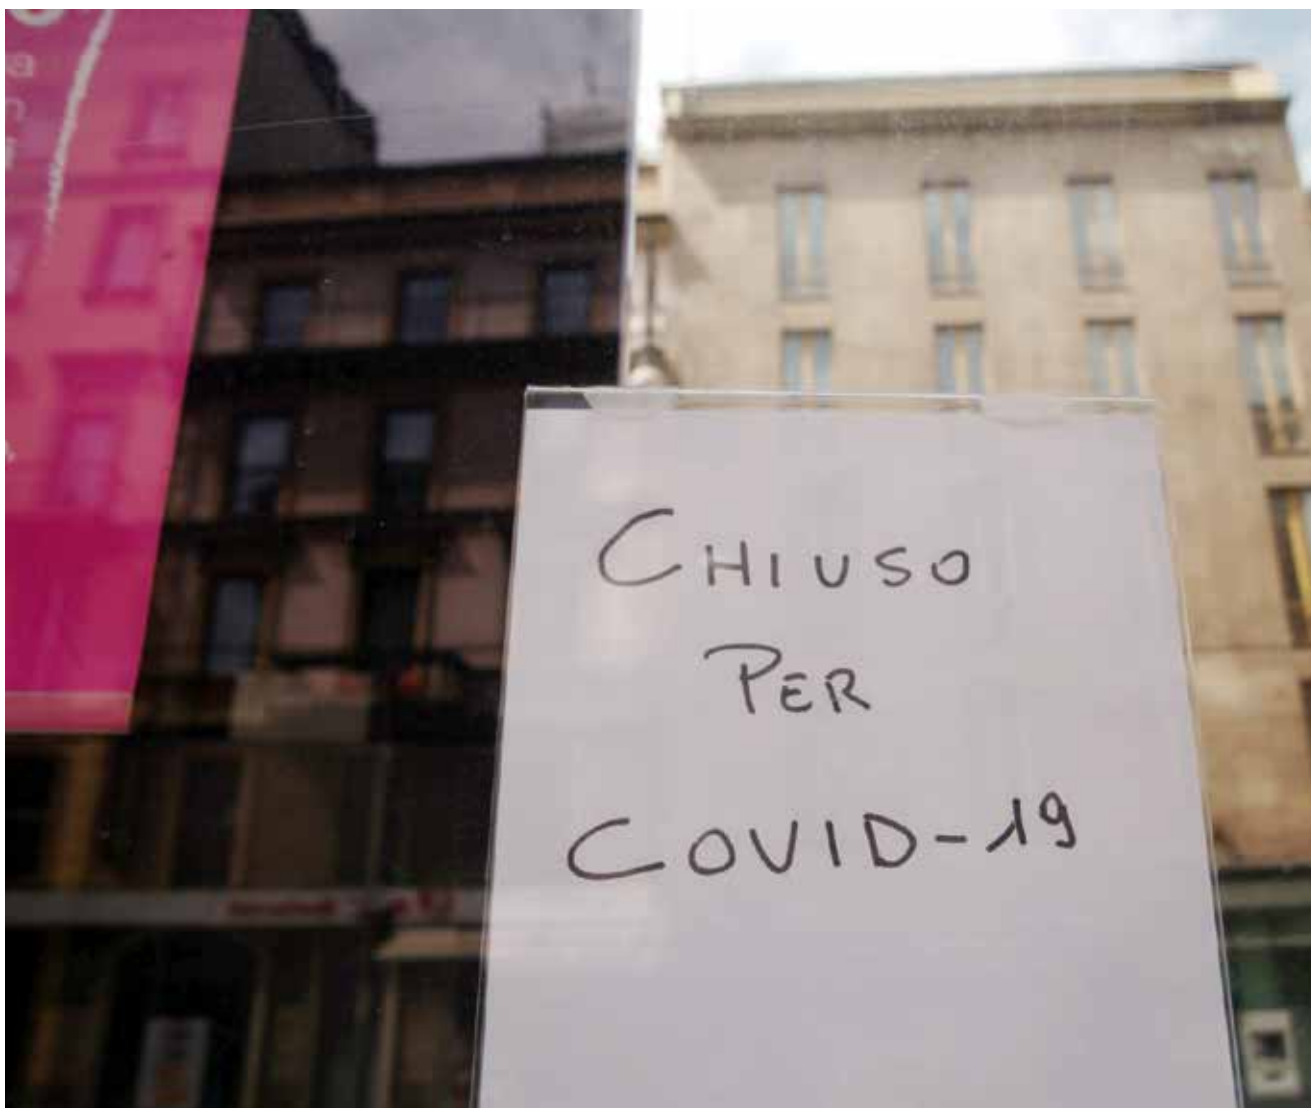 CHIUSO
PER
COVID-19